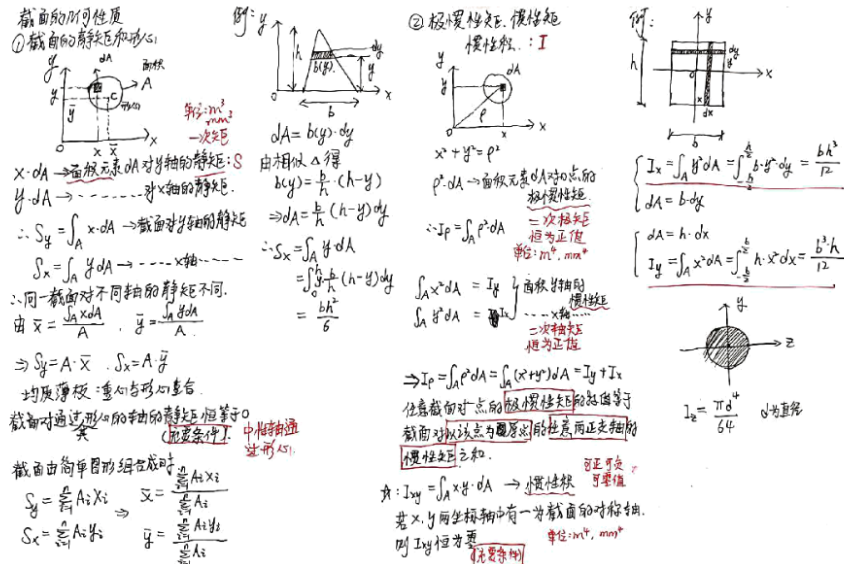 截面的几何性质
①截面的静矩和形心
y
dA
面积
A
y
ȳ
C
形心
O
x
x̄
x
单位: m³
mm³
一次矩
x·dA → 面积元素dA对y轴的静矩: S
y·dA → -------- 对x轴的静矩.
∴ Sy = ∫A x·dA → 截面对y轴的静矩
Sx = ∫A y dA → ---- x轴 -----
∴ 同一截面对不同轴的静矩不同.
由 x̄ = ∫A xdA / A , ȳ = ∫A ydA / A
⇒ Sy = A·x̄ . Sx = A·ȳ
均质薄板: 重心与形心重合.
截面对通过其形心的轴的静矩恒等于0
(充要条件).
中性轴通
过形心.
截面由简单图形组合成时
Sy = Σ(i=1→n) Ai xi
Sx = Σ(i=1→n) Ai yi
⇒
x̄ = Σ(i=1→n) Ai xi / Σ(i=1→n) Ai
ȳ = Σ(i=1→n) Ai yi / Σ(i=1→n) Ai
例:
y
h
b(y)
dy
y
O
b
x
dA = b(y)·dy
由相似△得
b(y) = b/h·(h-y)
⇒ dA = b/h (h-y)dy
∴ Sx = ∫A y·dA
= ∫0→h y·b/h·(h-y)dy
= bh²/6
② 极惯性矩、惯性矩
惯性积: I
y
dA
y
ρ
O
x
x
x² + y² = ρ²
ρ²·dA → 面积元素dA对O点的
极惯性矩.
∴ Ip = ∫A ρ²·dA
二次极矩
恒为正值
单位: m⁴, mm⁴
∫A x²dA = Iy
∫A y²dA = Ix
面积y轴的
惯性矩
----x轴----
二次轴矩
恒为正值
⇒ Ip = ∫A ρ²dA = ∫A (x²+y²)dA = Iy + Ix
任意截面对一点的极惯性矩的数值等于
截面对以该点为原点的任意两正交轴的
惯性矩之和.
☆: Ixy = ∫A x·y·dA → 惯性积
可正可负
可零值
若x, y两坐标轴中有一为截面的对称轴.
则 Ixy 恒为零
(充要条件)
单位: m⁴, mm⁴
例:
y
h
dy
y
O
x
dx
b
Ix = ∫A y²dA = ∫-h/2→h/2 b·y²·dy = bh³/12
dA = b·dy
dA = h·dx
Iy = ∫A x²dA = ∫-b/2→b/2 h·x²dx = b³·h/12
y
z
Iz = πd⁴/64
d为直径